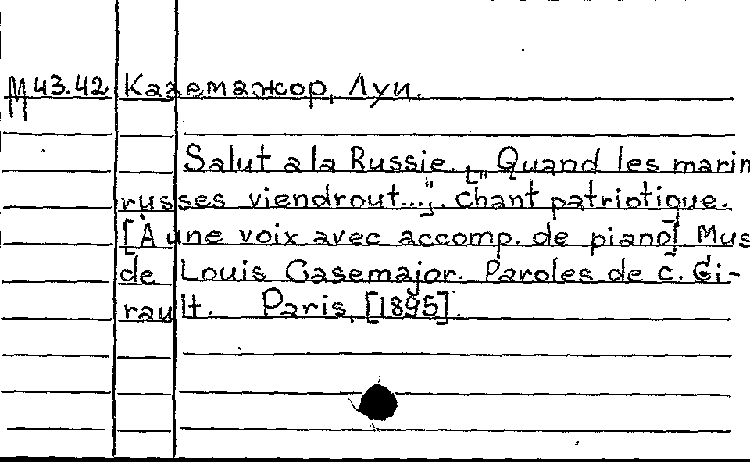 М 43.42 Каземажор, Луи.
Salut a la Russie. [„Quand les marin
russes viendrout...“]. Chant patriotique.
[À une voix avec accomp. de piano]. Mus
de Louis Casemajor. Paroles de C. Gi-
rault. Paris, [1895].